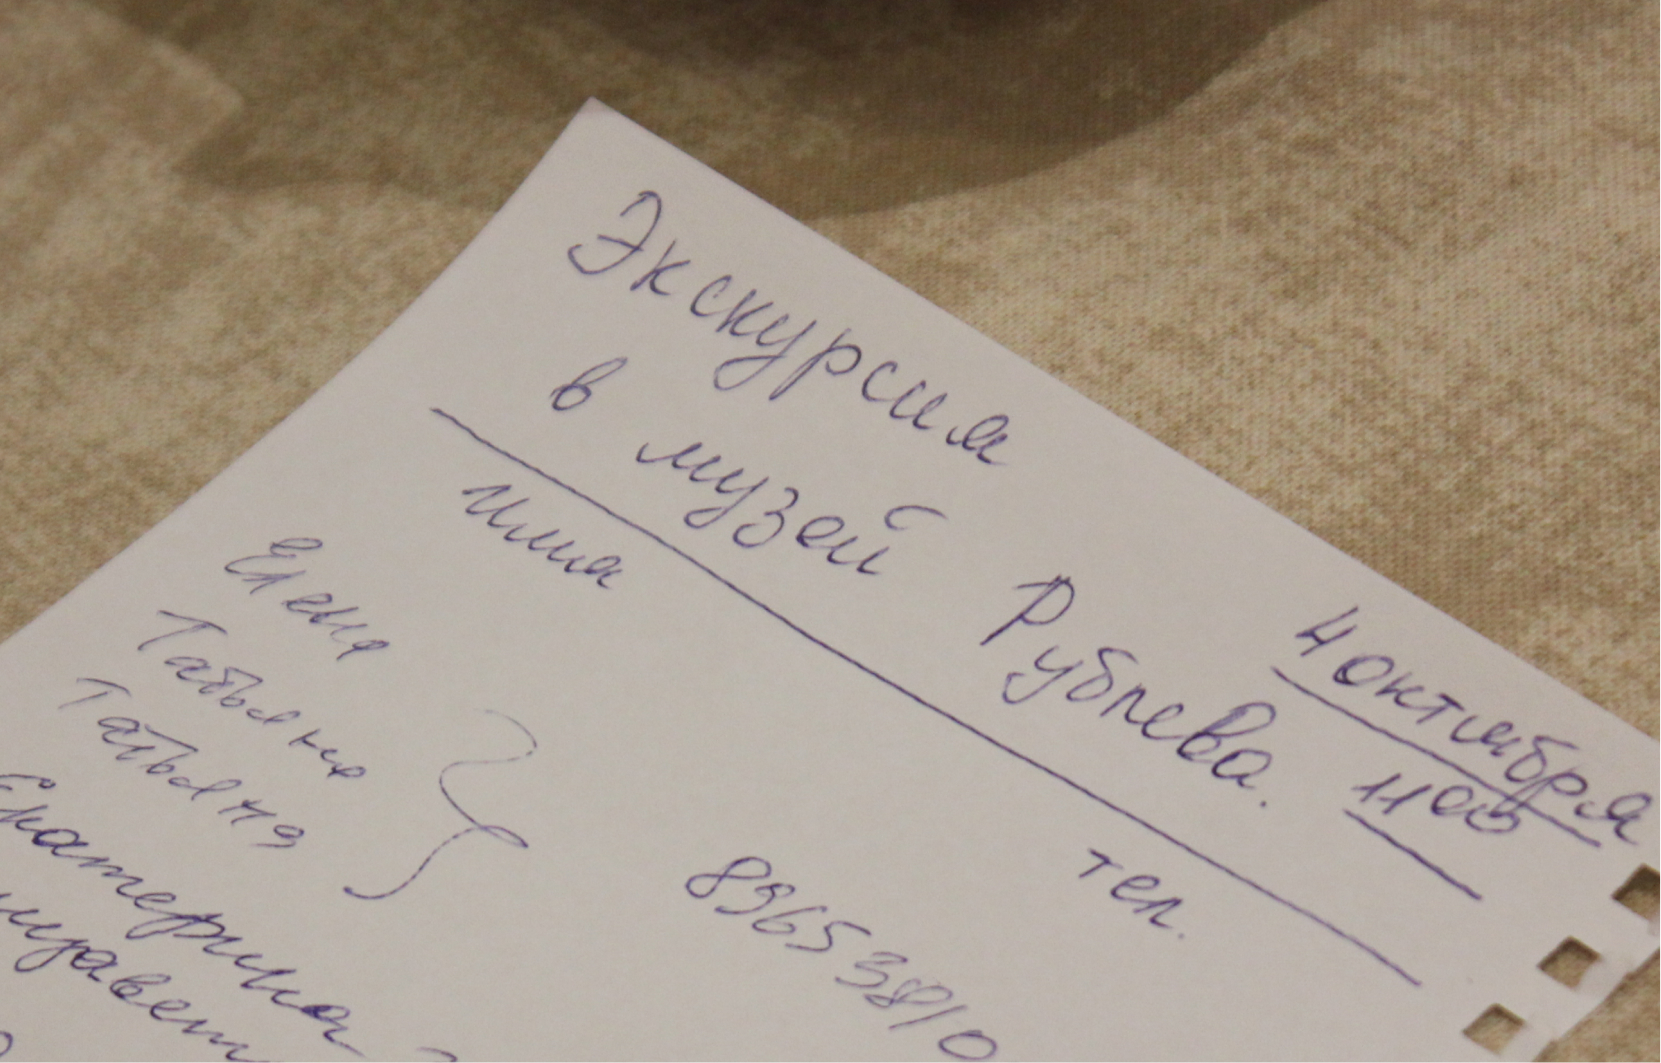 Экскурсия
в музей Рублева.
4 октября
11 00
имя
тел.
Елена
Татьяна
Татьяна
89653810
Екатерина